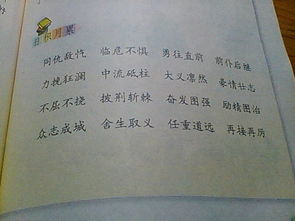 日积月累
同仇敌忾 临危不惧 勇往直前 前仆后继
力挽狂澜 中流砥柱 大义凛然 豪情壮志
不屈不挠 披荆斩棘 奋发图强 励精图治
众志成城 舍生取义 任重道远 再接再厉